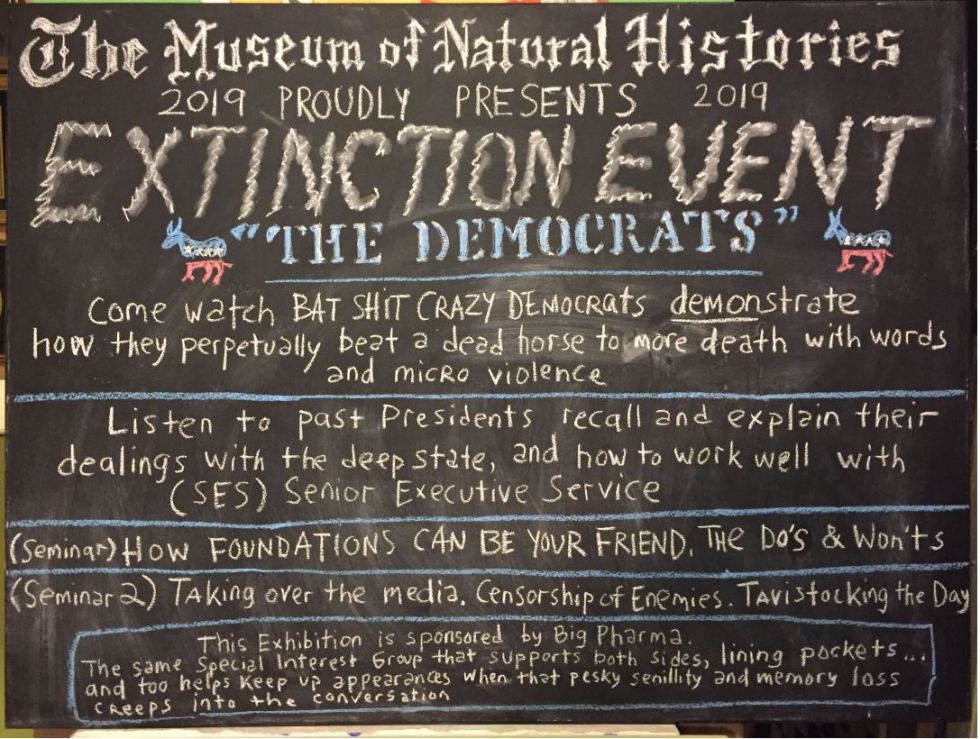 The Museum of Natural Histories
2019 PROUDLY PRESENTS 2019
EXTINCTION EVENT
"THE DEMOCRATS"
Come watch BAT SHIT CRAZY DEMOCRATS demonstrate
how they perpetually beat a dead horse to more death with words
and micro violence
Listen to past Presidents recall and explain their
dealings with the deep state, and how to work well with
(SES) Senior Executive Service
(Seminar) HOW FOUNDATIONS CAN BE YOUR FRIEND. THE DO'S & WON'TS
(Seminar 2) Taking over the media. Censorship of Enemies. Tavistocking the Day
This Exhibition is sponsored by Big Pharma.
The same Special Interest Group that supports both sides, lining pockets...
and too helps keep up appearances when that pesky senillity and memory loss
creeps into the conversation